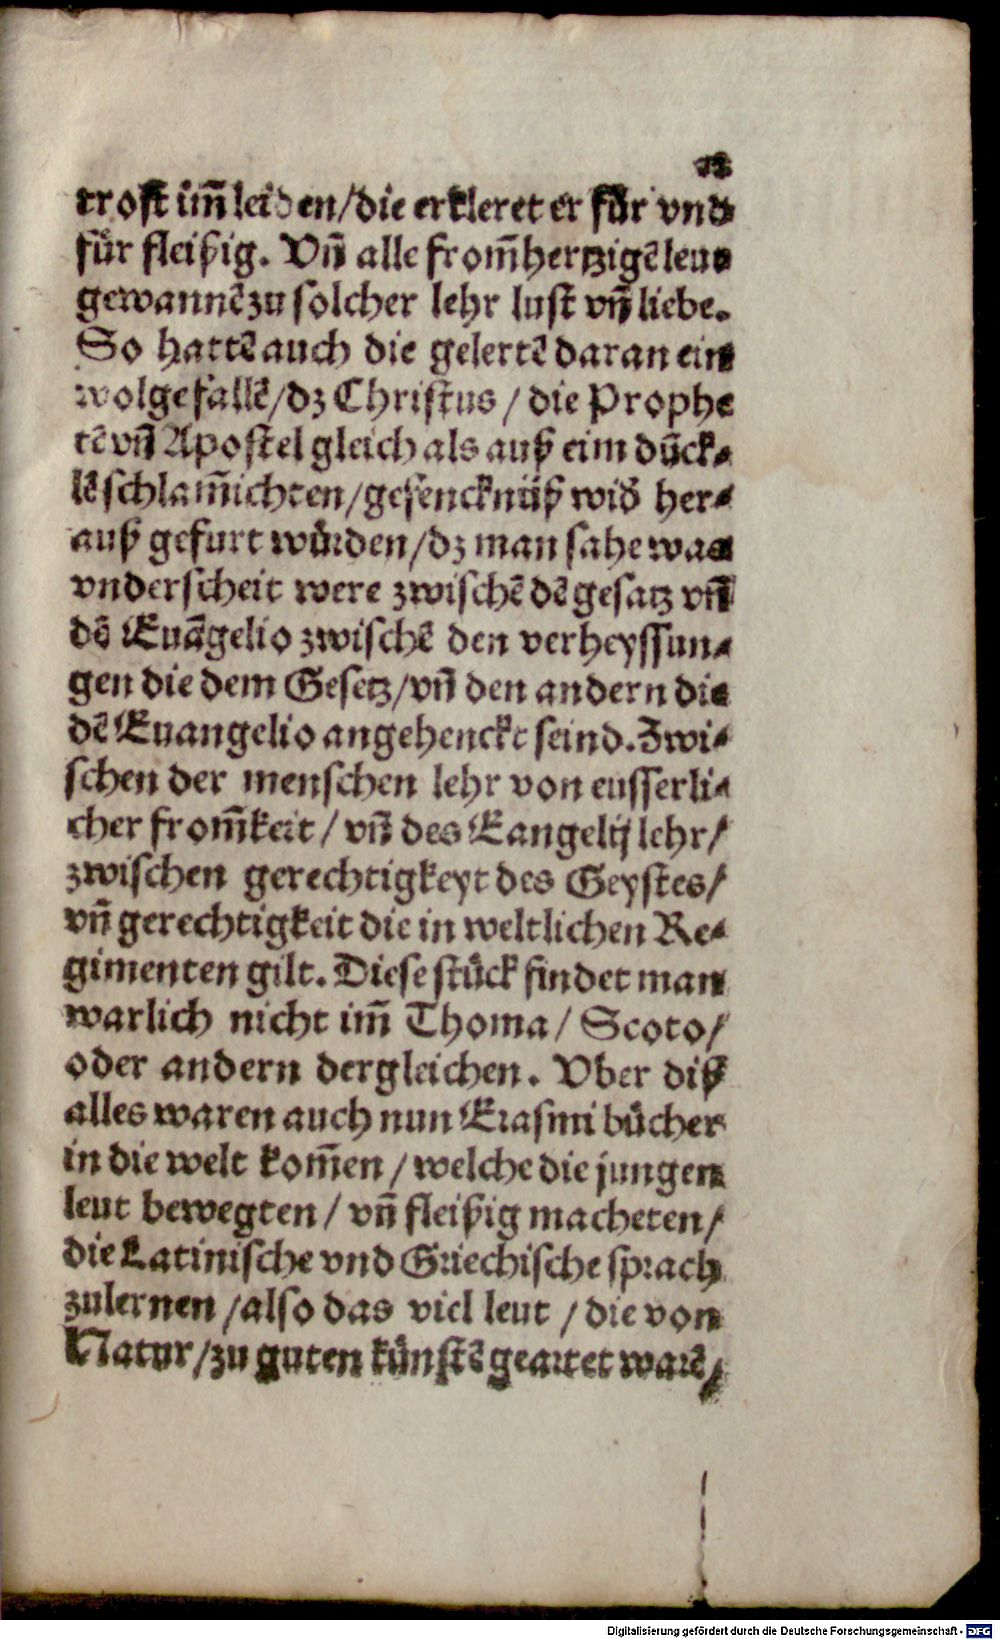 trost im̃ leiden/die erkleret er fůr vnd
fůr fleißig. Vñ alle from̃hertzigẽ leut
gewannẽ zu solcher lehr lust vñ liebe.
So hattẽ auch die gelertẽ daran ein
wolgefallẽ/dz Christus / die Prophe
tẽ vñ Apostel gleich als auß eim dũck⸗
lẽ schlam̃ichten/gefencknüß wid̕ her⸗
auß gefurt wůrden/dz man sahe was
vnderscheit were zwischẽ dẽ gesatz vñ
dẽ Euãgelio zwischẽ den verheyssun⸗
gen die dem Gesetz/vñ den andern die
dẽ Euangelio angehenckt seind. Zwi⸗
schen der menschen lehr von eusserli⸗
cher from̃keit / vñ des Eangelij lehr/
zwischen gerechtigkeyt des Geystes/
vñ gerechtigkeit die in weltlichen Re⸗
gimenten gilt. Diese stůck findet man
warlich nicht im̃ Thoma/ Scoto/
oder andern dergleichen. Vber diß
alles waren auch nun Erasmi bůcher
in die welt kom̃en / welche die jungen
leut bewegten / vñ fleißig macheten/
die Latinische vnd Griechische sprach
zulernen /also das viel leut / die von
Natur/zu guten kůnstẽ geartet warẽ/
Digitalisierung gefördert durch die Deutsche Forschungsgemeinschaft - DFG